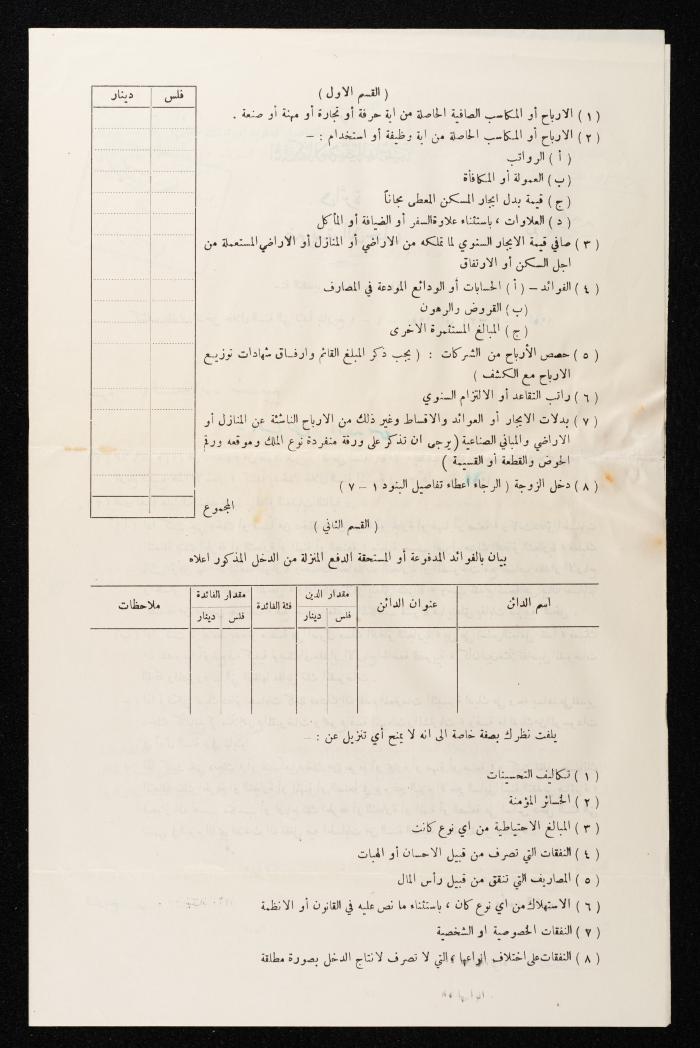 ( القسم الاول )
فلس دينار
( ١ ) الارباح أو المكاسب الصافية الحاصلة من اية حرفة أو تجارة أو مهنة أو صنعة .
( ٢ ) الارباح أو المكاسب الحاصلة من اية وظيفة أو استخدام : —
( أ ) الرواتب
( ب ) العمولة أو المكافأة
( ج ) قيمة بدل ايجار المسكن المعطى مجاناً
( د ) العلاوات ، باستثناء علاوة السفر أو الضيافة أو المأكل
( ٣ ) صافي قيمة الايجار السنوي لما تملكه من الاراضي أو المنازل أو الاراضي المستعملة من
اجل السكن أو الارتفاق
( ٤ ) الفوائد — ( أ ) الحسابات أو الودائع المودعة في المصارف
( ب ) القروض والرهون
( ج ) المبالغ المستثمرة الاخرى
( ٥ ) حصص الأرباح من الشركات : ( يجب ذكر المبلغ القائم وارفاق شهادات توزيع
الارباح مع الكشف )
( ٦ ) راتب التقاعد أو الالتزام السنوي
( ٧ ) بدلات الايجار أو العوائد والاقساط وغير ذلك من الارباح الناشئة عن المنازل أو
الاراضي والمباني الصناعية ( يرجى ان تذكر على ورقة منفردة نوع الملك وموقعه ورقم
الحوض والقطعة أو القسيمة )
( ٨ ) دخل الزوجة ( الرجاء اعطاء تفاصيل البنود ١ – ٧ )
المجموع
( القسم الثاني )
بيان بالفوائد المدفوعة أو المستحقة الدفع المنزلة من الدخل المذكور اعلاه
اسم الدائن عنوان الدائن مقدار الدين فئة الفائدة مقدار الفائدة ملاحظات
فلس دينار فلس دينار
يلفت نظرك بصفة خاصة الى انه لا يمنح أي تنزيل عن : —
( ١ ) تكاليف التحسينات
( ٢ ) الخسائر المؤمنة
( ٣ ) المبالغ الاحتياطية من اي نوع كانت
( ٤ ) النفقات التي تصرف من قبيل الاحسان أو الهبات
( ٥ ) المصاريف التي تنفق من قبيل رأس المال
( ٦ ) الاستهلاك من اي نوع كان ، باستثناء ما نص عليه في القانون أو الانظمة
( ٧ ) النفقات الخصوصية او الشخصية
( ٨ ) النفقات على اختلاف انواعها ، التي لا تصرف لانتاج الدخل بصورة مطلقة